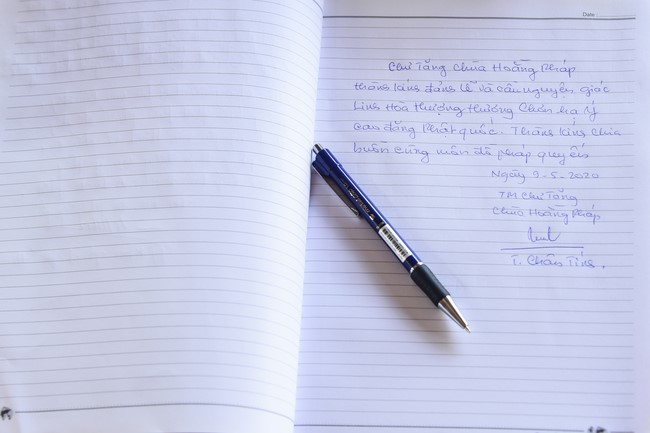 Date
Chư Tăng chùa Hoằng Pháp
thành kính đảnh lễ và cầu nguyện giác
linh Hòa thượng thượng Chơn hạ Ý
cao đăng Phật quốc. Thành kính chia
buồn cùng môn đồ pháp quyến
Ngày 9-5-2020
TM Chư Tăng
Chùa Hoằng Pháp
T. Chân Tính.